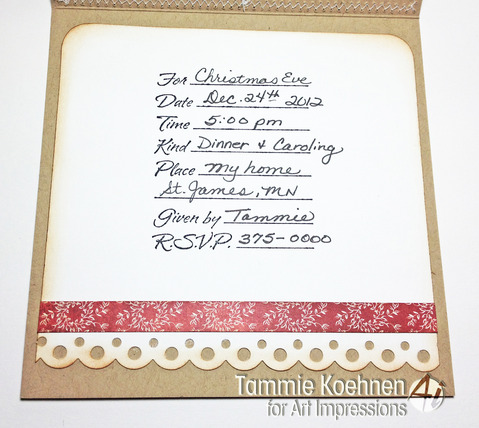 For Christmas Eve
Date Dec. 24th 2012
Time 5:00 pm
Kind Dinner & Caroling
Place my home
St. James, MN
Given by Tammie
R.S.V.P. 375-0000
Tammie Koehnen
for Art Impressions
4i